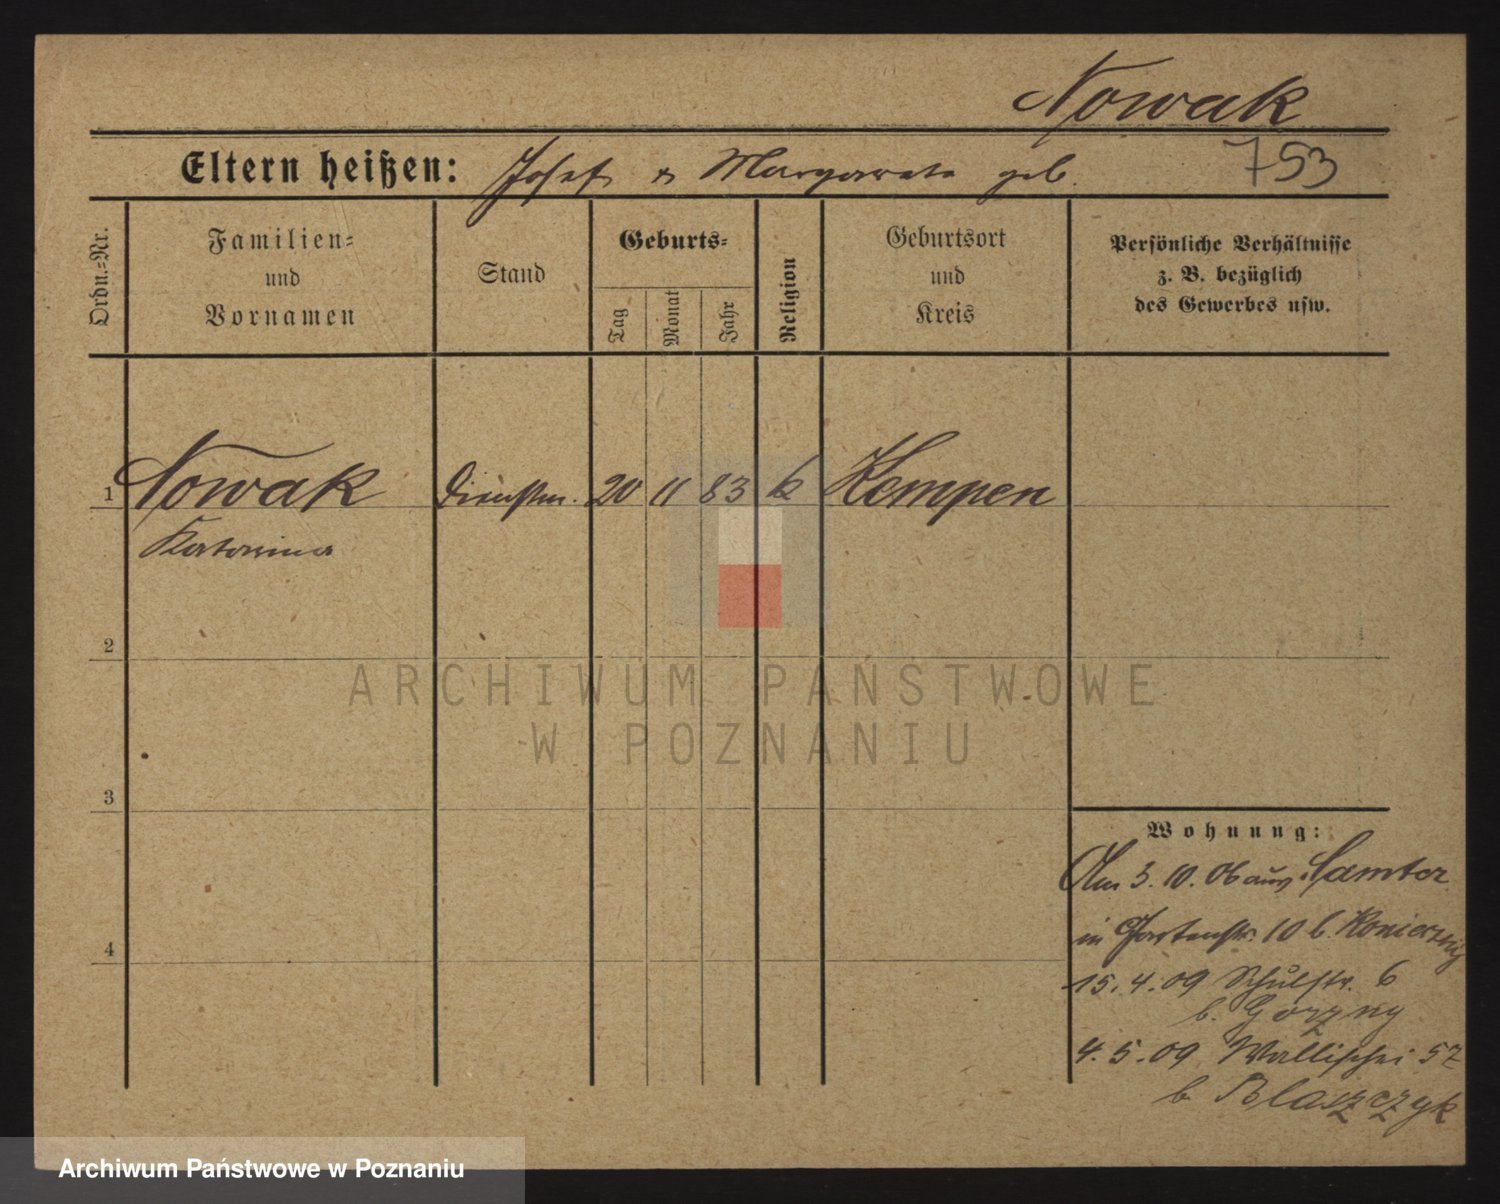 Nowak
Eltern heißen: Josef u Margareta geb.
753
Ordn.-Nr.
Familien-
und
Vornamen
Stand
Geburts-
Tag
Monat
Jahr
Religion
Geburtsort
und
Kreis
Persönliche Verhältnisse
z. B. bezüglich
des Gewerbes usw.
1 Nowak Dienstm. 20 11 83 k Kempen
Katarina
2
3
4
Wohnung:
Am 3. 10. 06 aus Samter
in Gartenstr. 10 b.
15. 4. 09 Schulstr. 6
b. Gorzny
4. 5. 09 Wallischei 57
b Blaszczyk
ARCHIWUM PAŃSTWOWE
W POZNANIU
Archiwum Państwowe w Poznaniu